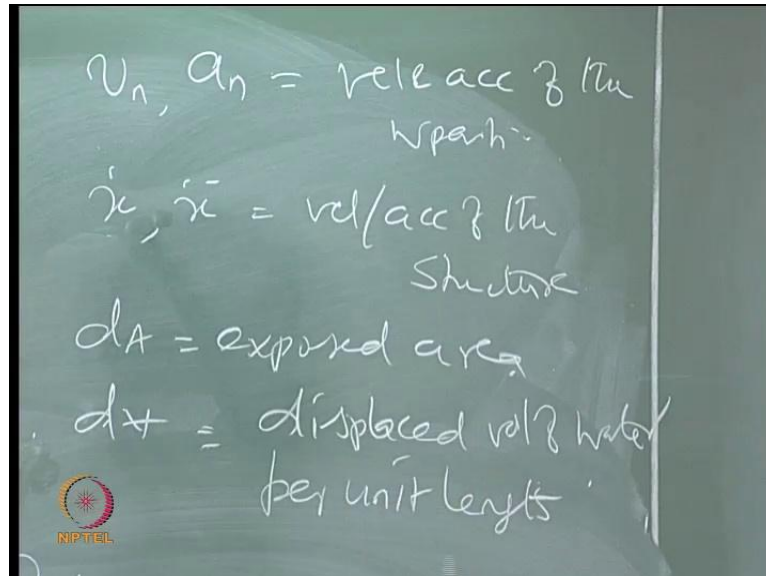 vₙ, aₙ = vel & acc of the
w parti.
ẋ, ẍ = vel/acc of the
Structure
dA = exposed area
dV̶ = displaced vol of water
per unit length
NPTEL